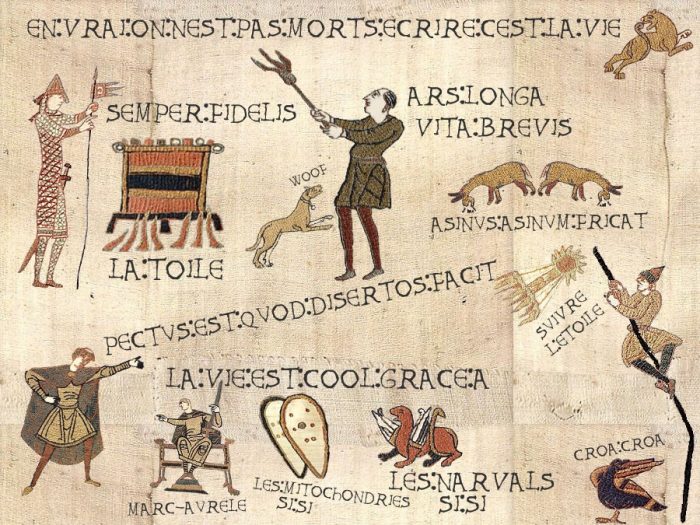 EN:VRAI:ON:NEST:PAS:MORTS:ECRIRE:CEST:LA:VIE
SEMPER:FIDELIS
ARS:LONGA
VITA:BREVIS
WOOF
ASINVS:ASINVM:FRICAT
LA:TOILE
PECTVS:EST:QVOD:DISERTOS:FACIT
SVIVRE
L:ETOILE
LA:VIE:EST:COOL:GRACE:A
CROA:CROA
MARC-AVRELE
LES:MITOCHONDRIES
SI:SI
LES:NARVALS
SI:SI